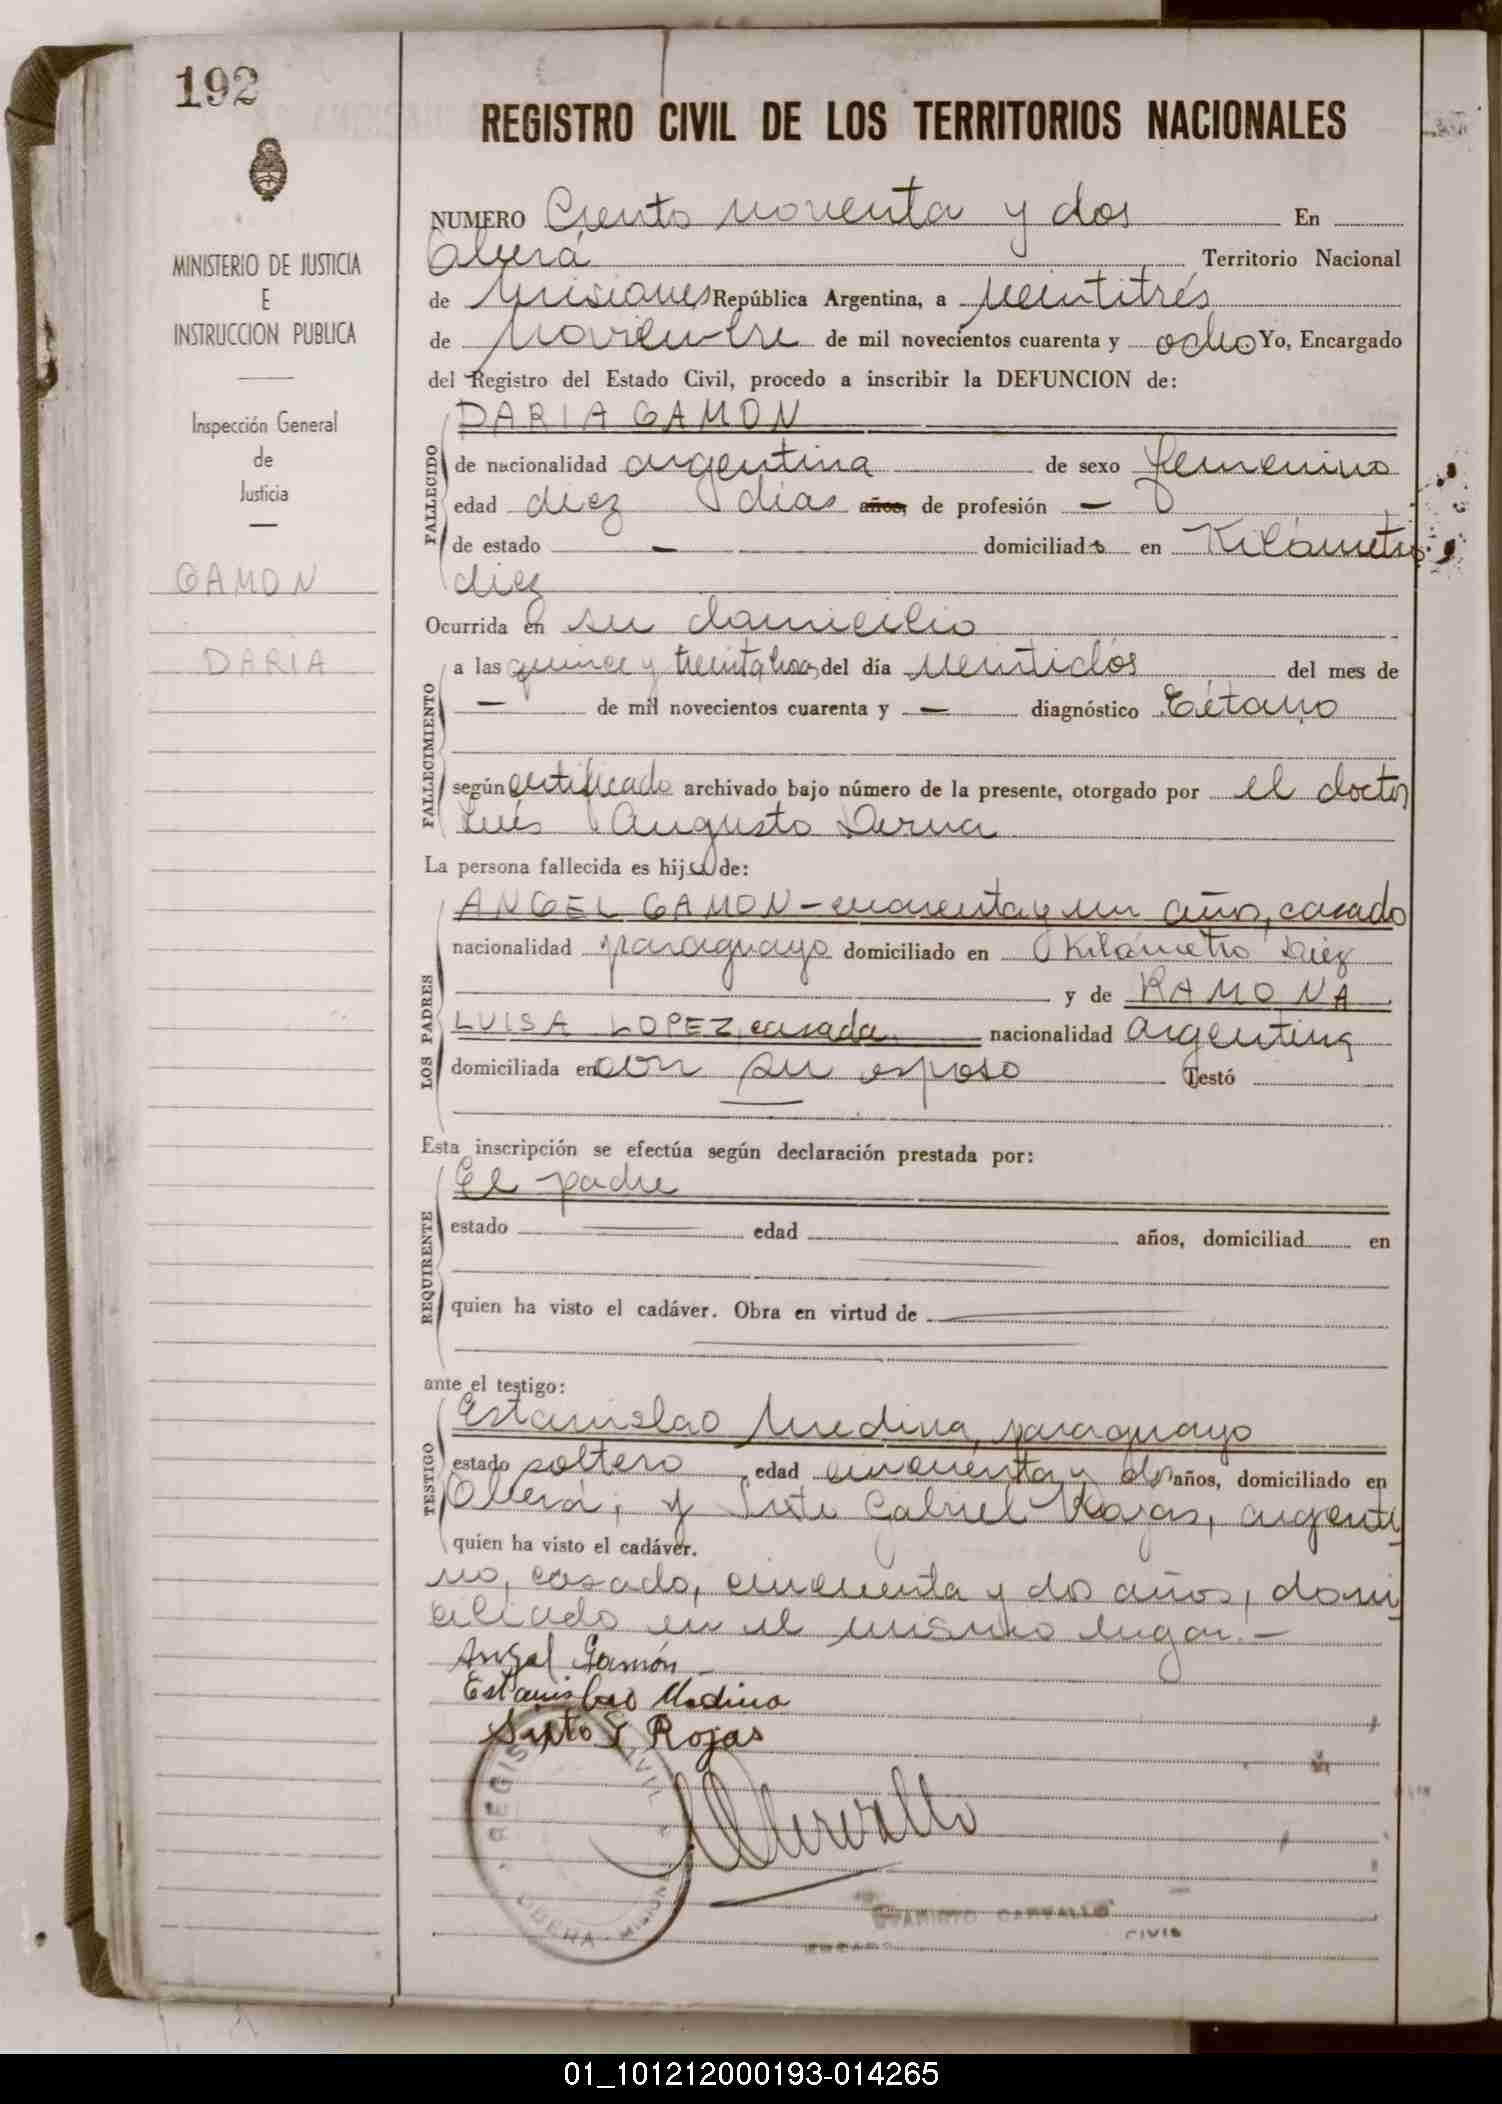 192
REGISTRO CIVIL DE LOS TERRITORIOS NACIONALES
MINISTERIO DE JUSTICIA
E
INSTRUCCION PUBLICA
Inspección General
de
Justicia
GAMON
DARIA
NUMERO Ciento noventa y dos En
Oberá Territorio Nacional
de Misiones República Argentina, a veintitrés
de Noviembre de mil novecientos cuarenta y ocho Yo, Encargado
del Registro del Estado Civil, procedo a inscribir la DEFUNCION de:
DARIA GAMON
FALLECIDO
de nacionalidad argentina de sexo femenino
edad diez días años, de profesión —
de estado — domiciliada en Kilómetro
diez
Ocurrida en su domicilio
FALLECIMIENTO
a las quince y treinta horas del día veintidós del mes de
— de mil novecientos cuarenta y — diagnóstico Tétano
según certificado archivado bajo número de la presente, otorgado por el doctor
Luis Augusto Derna
La persona fallecida es hija de:
LOS PADRES
ANGEL GAMON - cuarenta y un años, casado
nacionalidad paraguayo domiciliado en Kilómetro Diez
y de RAMONA
LUISA LOPEZ, casada nacionalidad argentina
domiciliada en con su esposo Testó
Esta inscripción se efectúa según declaración prestada por:
REQUIRENTE
El padre
estado edad años, domiciliad en
quien ha visto el cadáver. Obra en virtud de
ante el testigo:
TESTIGO
Estanislao Medina, paraguayo
estado soltero, edad cincuenta y dos años, domiciliado en
Oberá; y Sixto Gabriel Rojas, argenti
quien ha visto el cadáver.
no, casado, cincuenta y dos años, domi
ciliado en el mismo lugar.—
Angel Gamón
Estanislao Medina
Sixto G Rojas
REGISTRO CIVIL
OBERA - MISIONES
Carvallo
EVARISTO CARVALLO
CIVIL
01_101212000193-014265